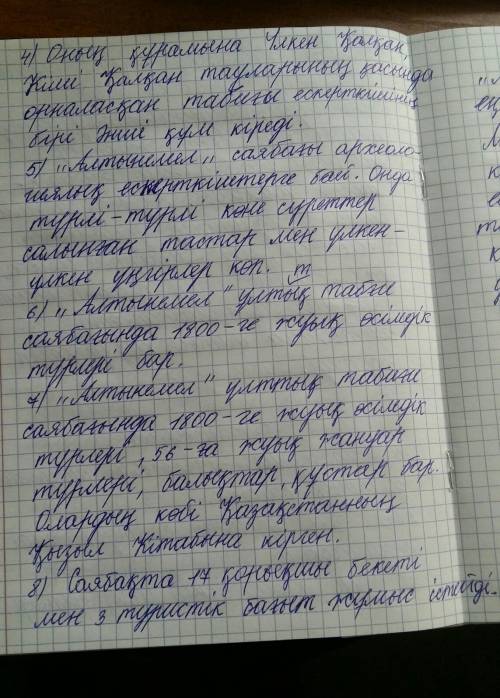 4) Оның құрамына Үлкен Қалқан,
Кіші Қалқан тауларының қасында
орналасқан табиғи ескерткішінің
бірі Әнші құм кіреді.
5) „Алтынемел„ саябағы археоло-
гиялық ескерткіштерге бай. Онда
түрлі-түрлі көне суреттер
салынған тастар мен үлкен-
үлкен үңгірлер көп.
6) „Алтынемел" ұлттық табиғи
саябағында 1800-ге жуық өсімдік
түрлері бар.
7) „Алтынемел" ұлттық табиғи
саябағында 1800-ге жуық өсімдік
түрлері, 56-ға жуық жануар
түрлері, балықтар, құстар бар.
Олардың көбі Қазақстанның
Қызыл Кітабына кірген.
8) Саябақта 17 қорықшы бекеті
мен 3 туристік бағыт жұмыс істейді.